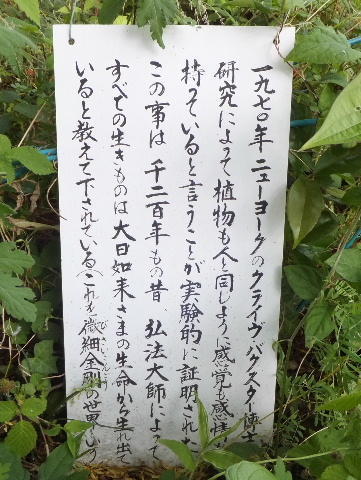 一九七〇年 ニューヨークのクライヴ バクスター博士
研究によって植物も人と同じように感覚も感情
持っていると言うことが実験的に証明された
この事は 千二百年もの昔、弘法大師によって
すべての生きものは大日如来さまの生命から生れ出て
いると教えて下されている(これを微細金剛の世界という